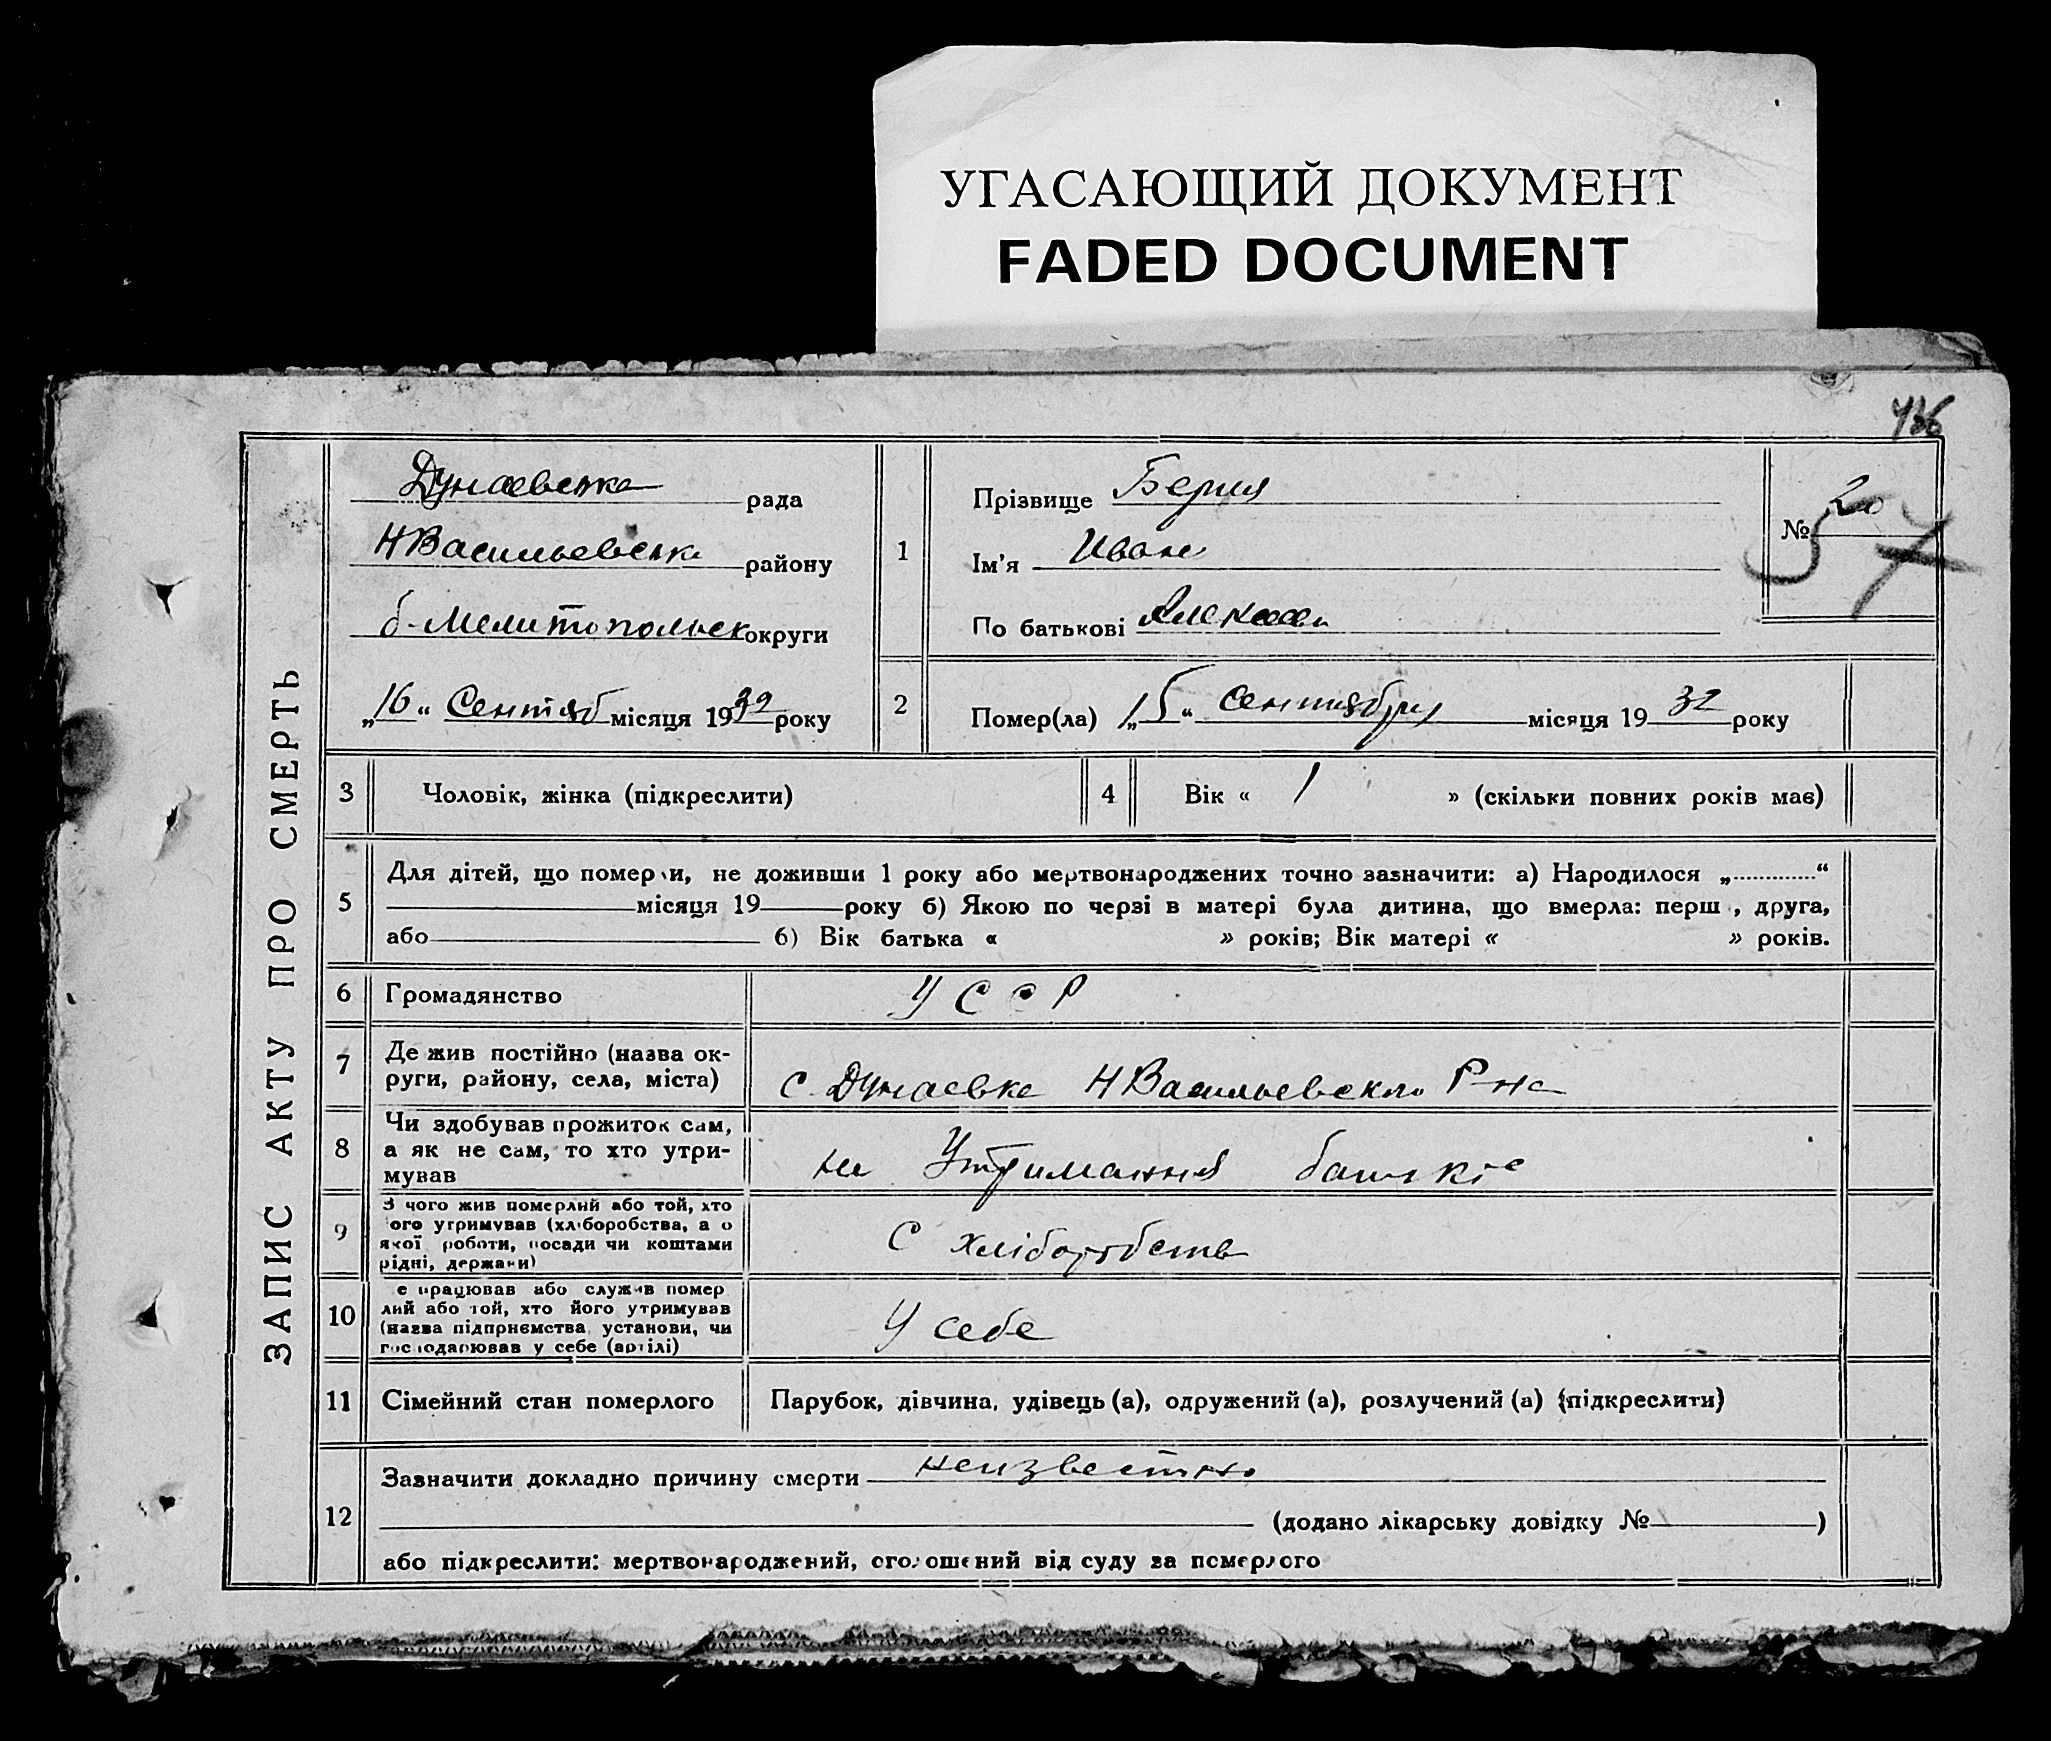 УГАСАЮЩИЙ ДОКУМЕНТ
FADED DOCUMENT
436
ЗАПИС АКТУ ПРО СМЕРТЬ
Дунаевська рада
НВасильевськ району
б-Мелитопольск округи
„16“ Сентяб місяця 1932 року
1
Прізвище Берия
Ім'я Иван
По батькові Алексеев
№ 20
57
2
Помер(ла) „15“ сентября місяця 1932 року
3 Чоловік, жінка (підкреслити)
4 Вік « 1 » (скільки повних років має)
5
Для дітей, що померли, не доживши 1 року або мертвонароджених точно зазначити: а) Народилося „.............“
місяця 19 року б) Якою по черзі в матері була дитина, що вмерла: перш , друга,
або 6) Вік батька « » років; Вік матері « » років.
6 Громадянство УССР
7 Де жив постійно (назва ок-
руги, району, села, міста)
с. Дунаевке НВасильевского Р-на
8 Чи здобував прожиток сам,
а як не сам, то хто утри-
мував
на Утримання батьків
9 З чого жив померлий або той, хто
ого утримував (хліборобства, а о
якої роботи, посади чи коштами
рідні, держави)
С хліборобств
10 е працював або служив помер
лий або той, хто його утримував
(назва підприємства, установи, чи
господарював у себе (артілі)
У себе
11 Сімейний стан померлого Парубок, дівчина, удівець (а), одружений (а), розлучений (а) (підкреслити)
12
Зазначити докладно причину смерти неизвестно
(додано лікарську довідку № )
або підкреслити: мертвонароджений, оголошений від суду за померлого